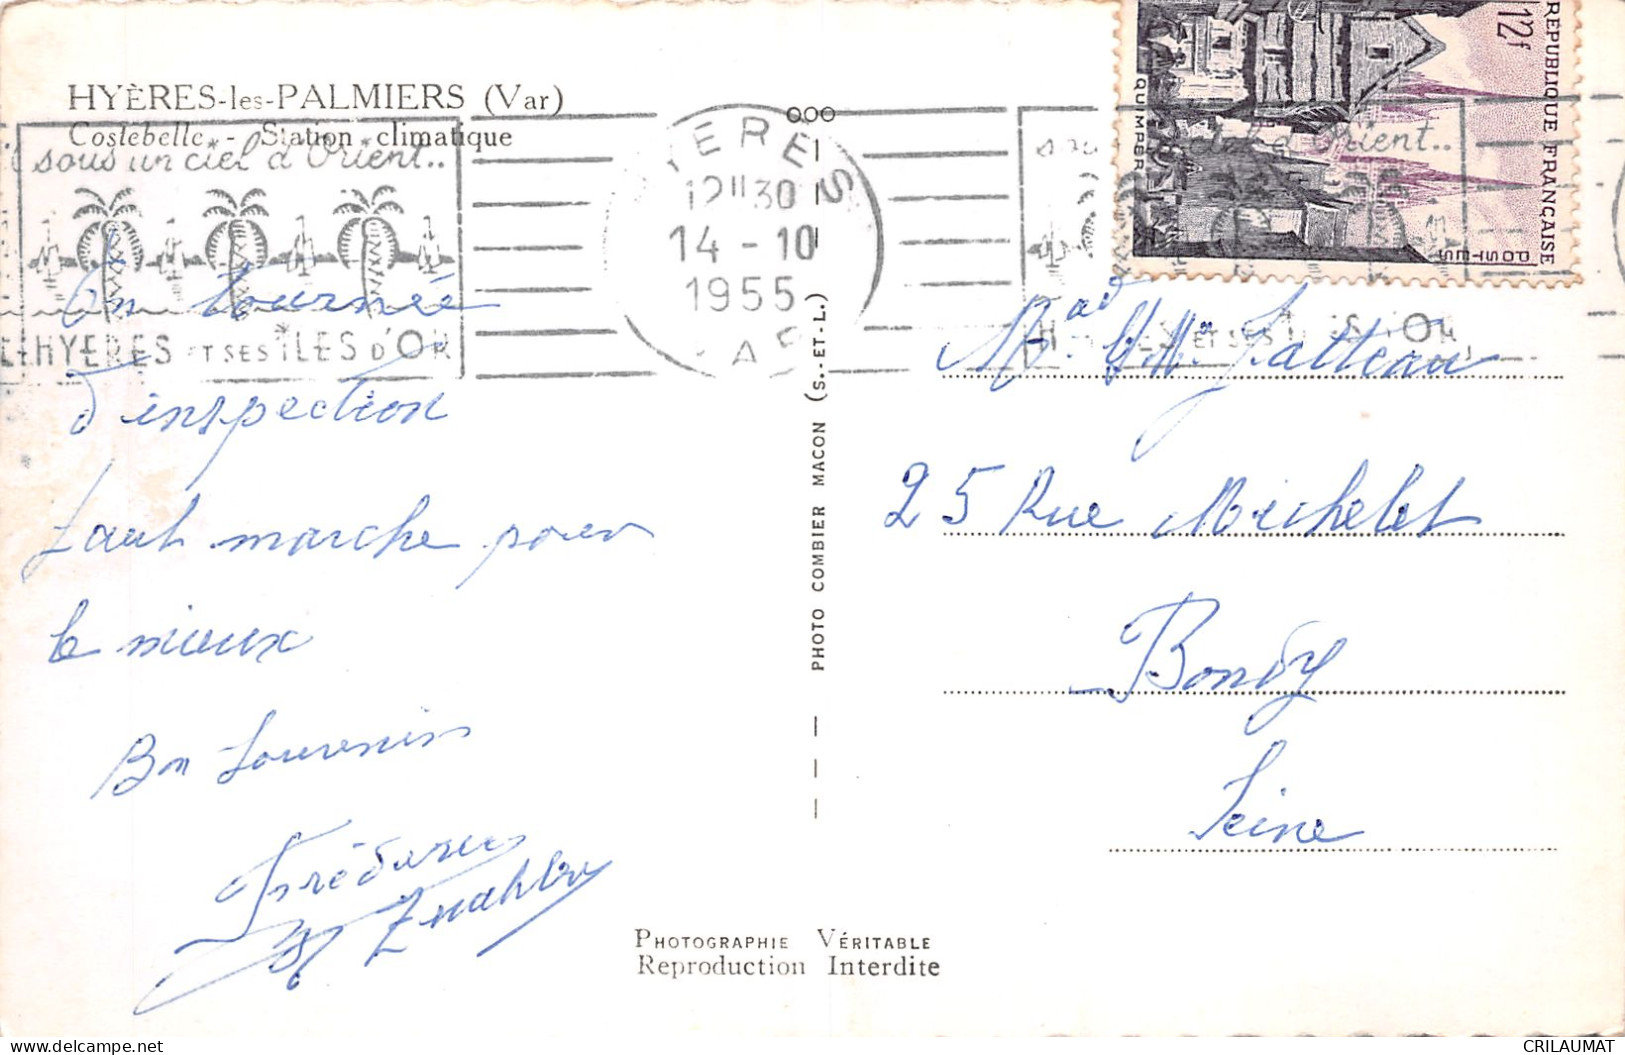 HYÈRES-les-PALMIERS (Var)
Costebelle - Station climatique
sous un ciel d'Orient..
HYERES ET SES ILES D'OR
HYERES
12H30
14-10
1955
VAR
RÉPUBLIQUE FRANÇAISE
12f
POSTES
QUIMPER
En tournée
d'inspection
tout marche pour
le mieux
Bon souvenir
Frédéric
PHOTO COMBIER MACON (S.-ET-L.)
25 Rue Michelet
Bondy
Seine
PHOTOGRAPHIE VÉRITABLE
Reproduction Interdite
CRILAUMAT